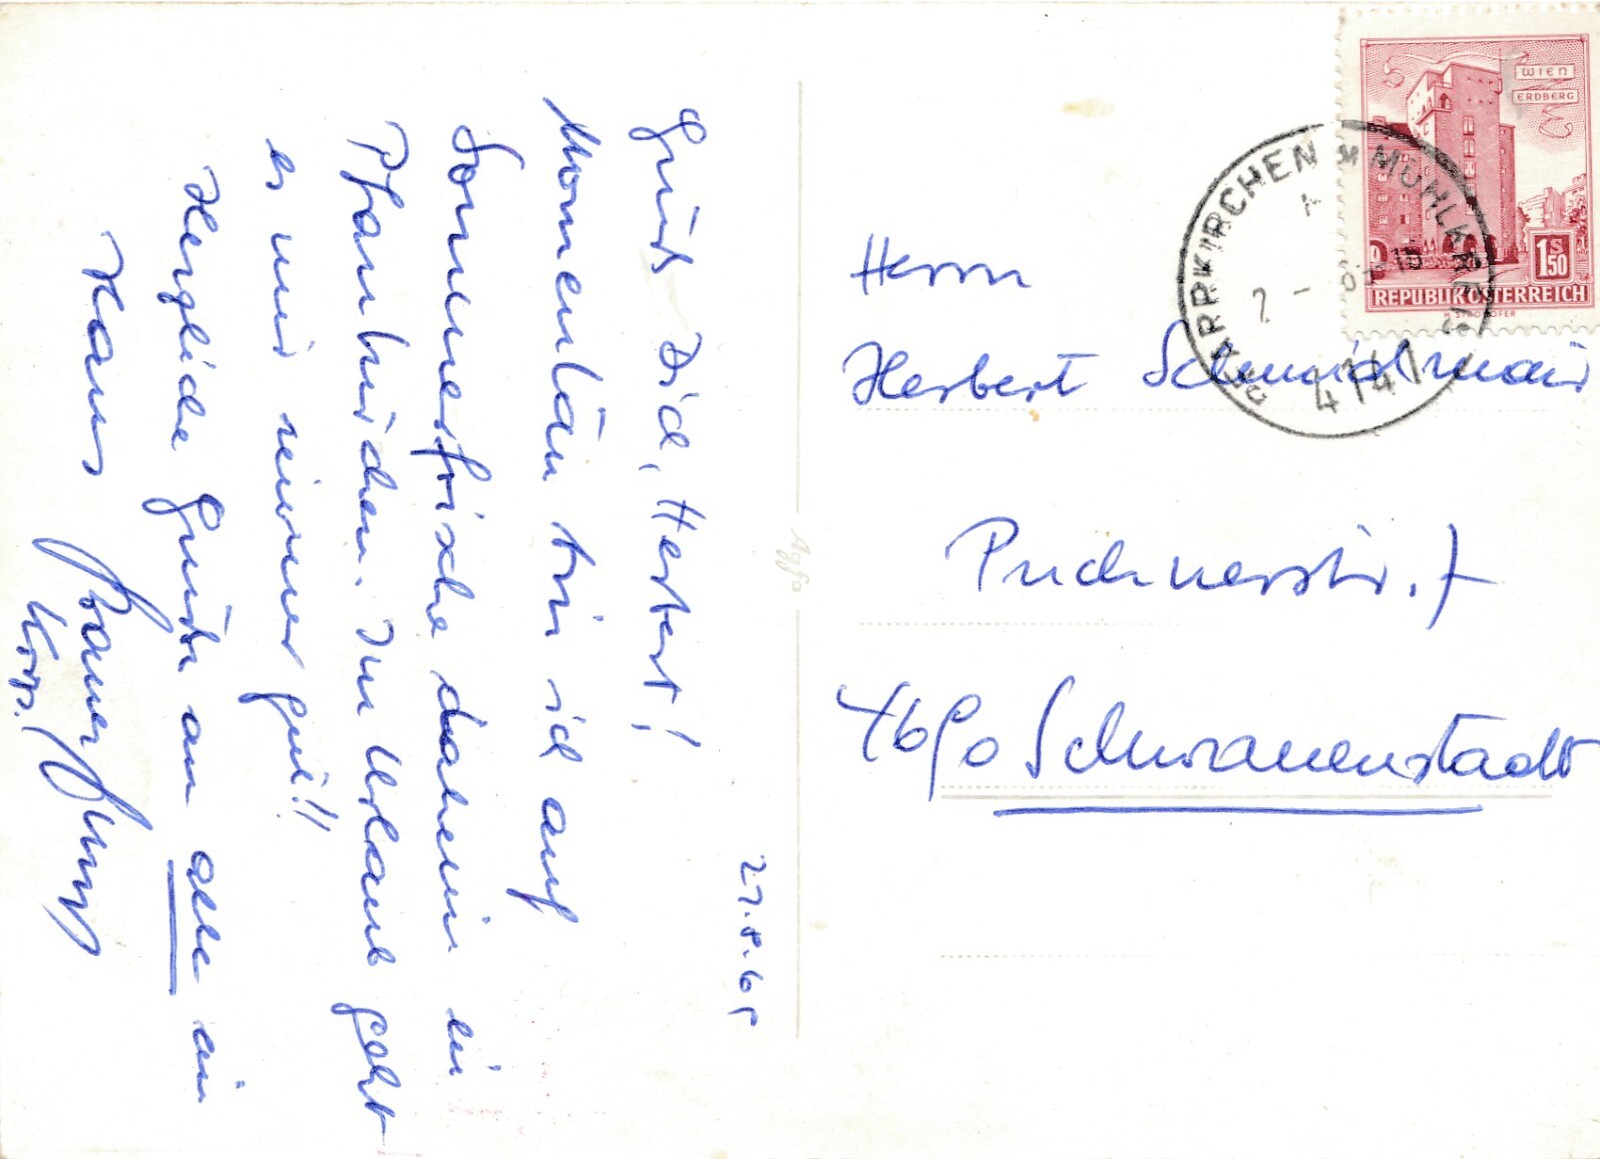 27.8.69
Grüß Dich, Herbert!
Momentan bin ich auf
Sommerfrische daheim in
Pfarrkirchen. Im Urlaub geht
es mir immer gut!!
Herzliche Grüße an alle im
Haus
Agfa
WIEN
ERDBERG
1 S 50
REPUBLIK ÖSTERREICH
PFARRKIRCHEN IM MÜHLKREIS
4141
Herrn
Herbert Schmidtmair
Puchnerstr. 7
4690 Schwanenstadt